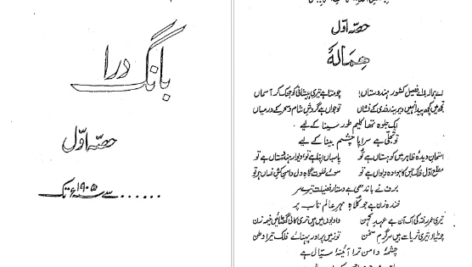 بانگ درا
حصہ اوّل
...... سے ۱۹۰۵ء تک
حصہ اوّل
ہمالہ
اے ہمالہ! اے فصیل کشور ہندوستاں!
چومتا ہے تیری پیشانی کو جھک کر آسماں
تجھ میں کچھ پیدا نہیں دیرینہ روزی کے نشاں
تو جواں ہے گردش شام و سحر کے درمیاں
ایک جلوہ تھا کلیم طور سینا کے لیے
تو تجلی ہے سراپا چشم بینا کے لیے
امتحان دیدۂ ظاہر میں کوہستاں ہے تو
پاسباں اپنا ہے تو دیوار ہندوستاں ہے تو
مطلع اوّل فلک جس کا ہو وہ دیواں ہے تو
سوئے خلوت گاہ دل دامن کش انساں ہے تو
برف نے باندھی ہے دستار فضیلت تیرے سر
خندہ زن ہے جو کلاہ مہر عالم تاب پر
تیری عمر رفتہ کی اک آن ہے عہد کہن
وادیوں میں ہیں تری کالی گھٹائیں خیمہ زن
چوٹیاں تیری ثریا سے ہیں سرگرم سخن
تو زمیں پر اور پہنائے فلک تیرا وطن
چشمۂ دامن ترا آئینۂ سیال ہے